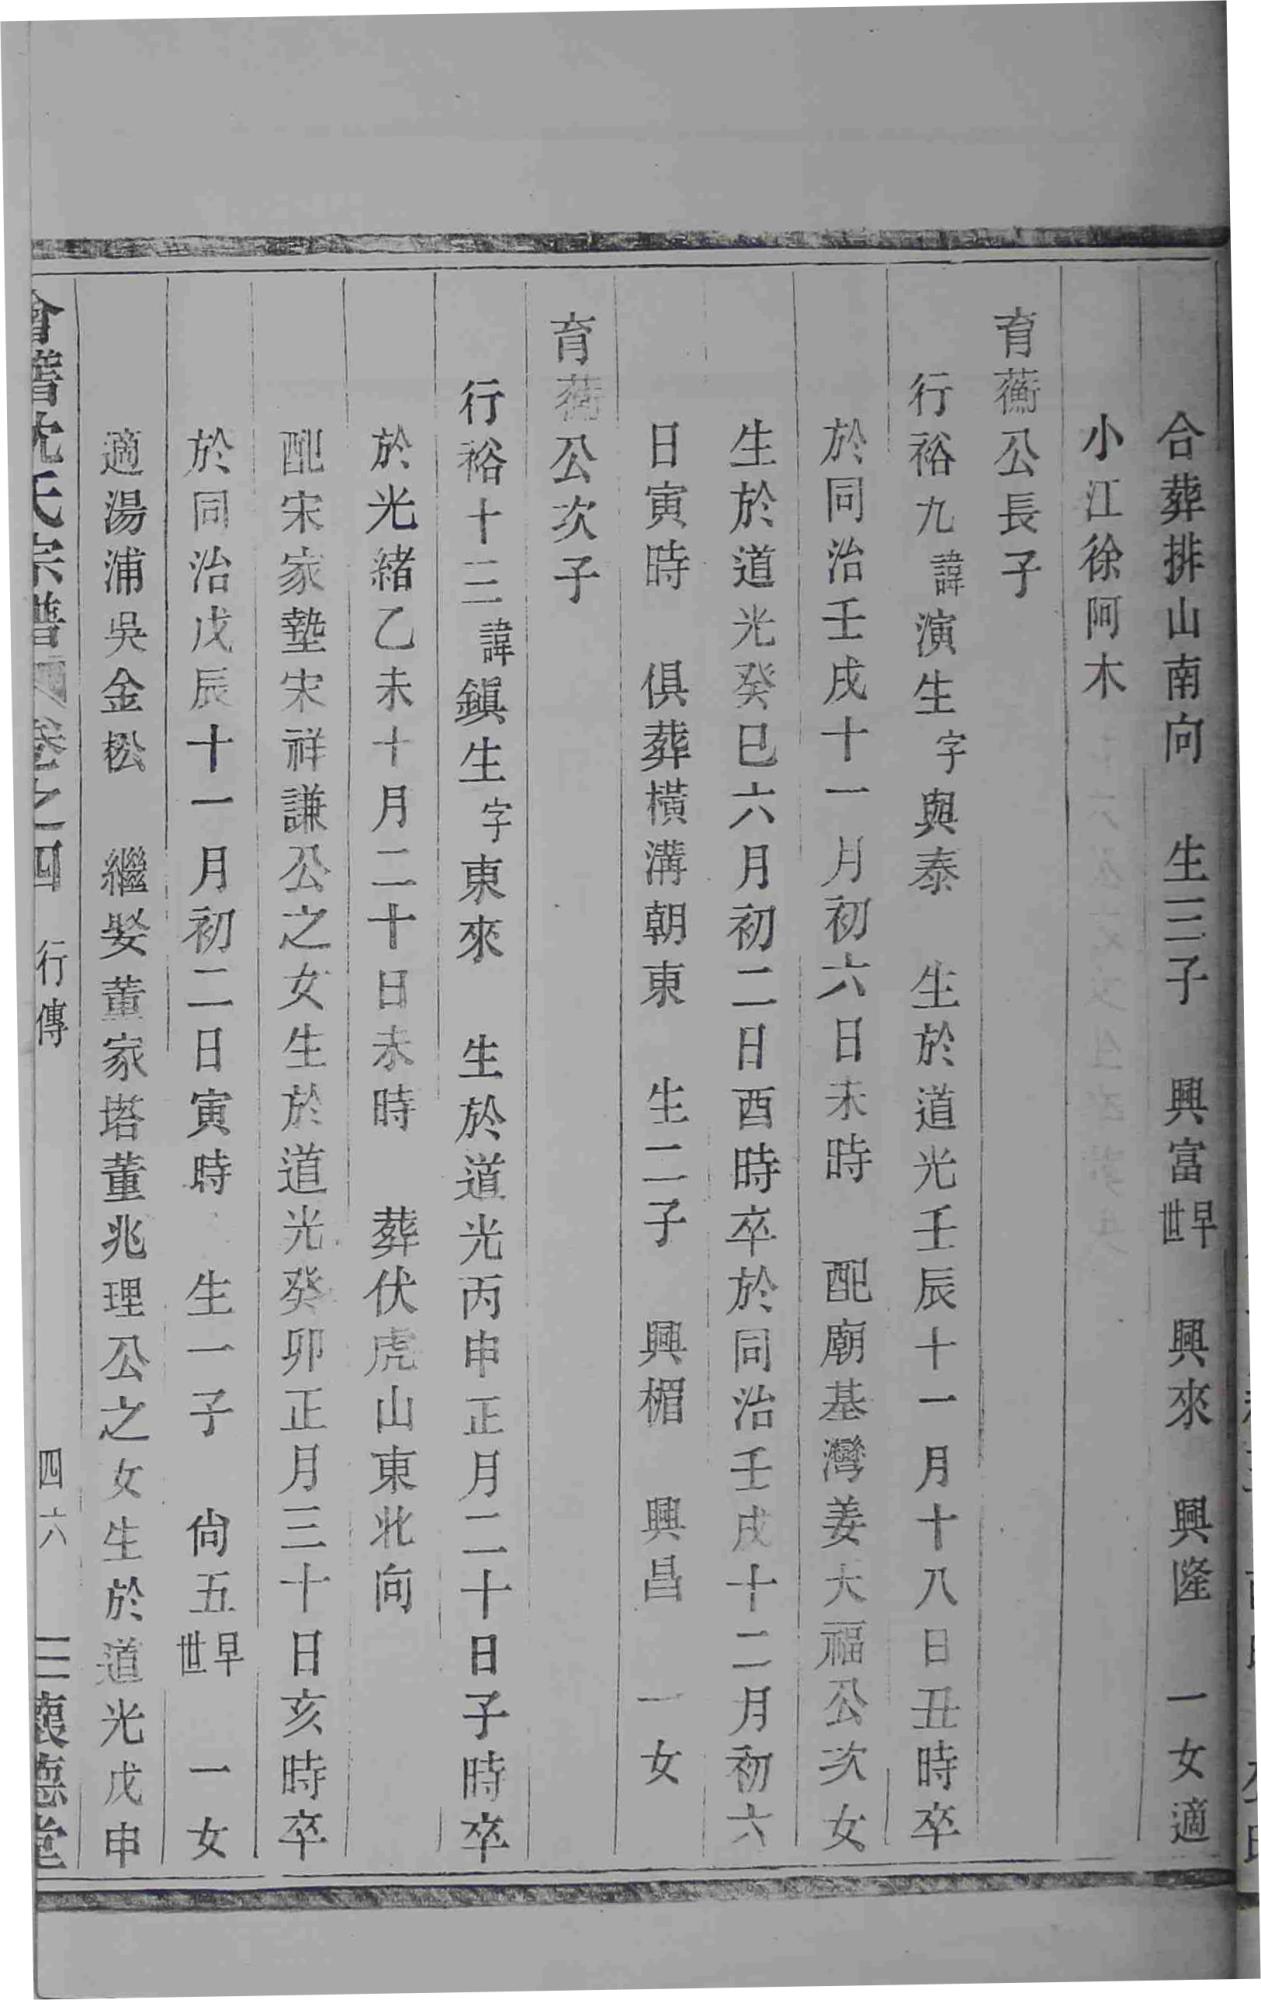 合葬排山南向　生三子　興富早世　興來　興隆　一女適
小江徐阿木
育蘅公長子
行裕九諱演生字與泰　生於道光壬辰十一月十八日丑時卒
於同治壬戌十一月初六日未時　配廟基灣姜大福公次女
生於道光癸巳六月初二日酉時卒於同治壬戌十二月初六
日寅時　俱葬橫溝朝東　生二子　興楣　興昌　一女
育蘅公次子
行裕十三諱鎮生字東來　生於道光丙申正月二十日子時卒
於光緒乙未十月二十日未時　葬伏虎山東北向
配宋家墊宋祥謙公之女生於道光癸卯正月三十日亥時卒
於同治戊辰十一月初二日寅時　生一子　尙五早世　一女
適湯浦吳金松　繼娶董家塔董兆理公之女生於道光戊申
會稽沈氏宗譜　卷之四　行傳　四六　懷德堂